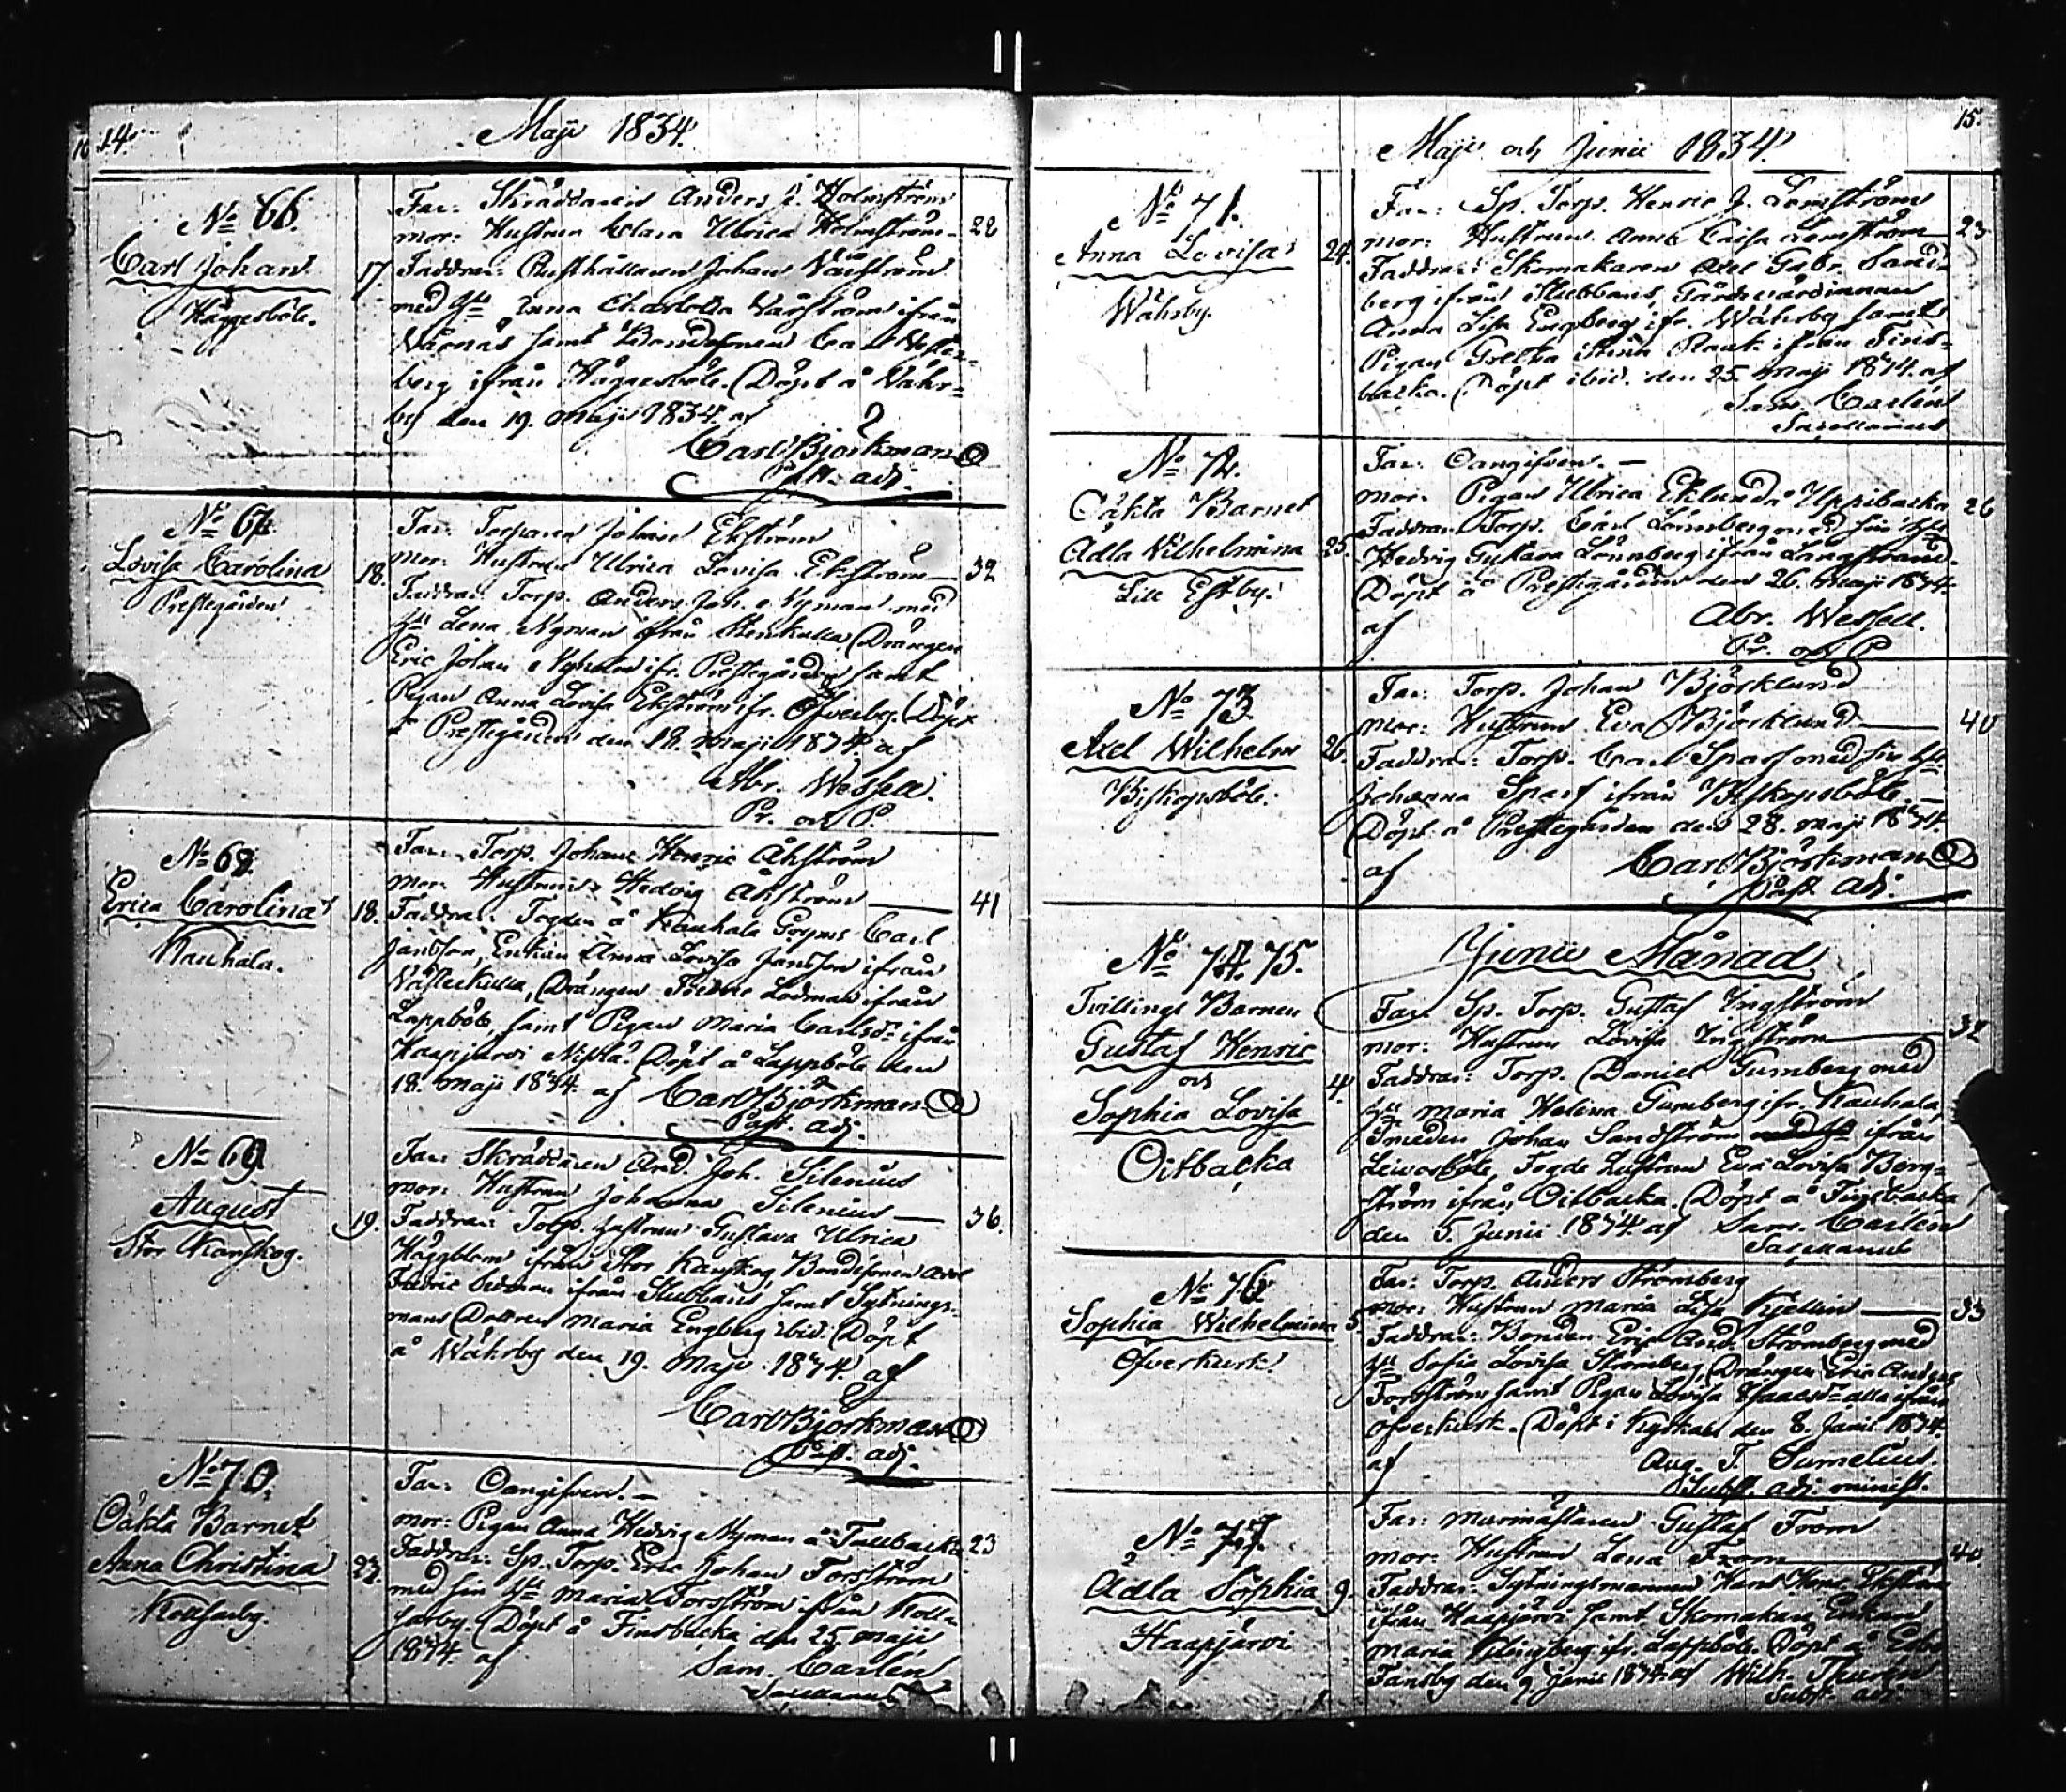 14.
Maji 1834.
No 66.
Carl Johan.
Häggesböle.
17.
Far: Skräddaren Anders Holmström
mor: Hustrun Clara Ulrica Holmström — 22
Faddrar: Rusthållaren Johan Varström
med Hu Anna Charlotta Varström ifrån
samt Bondesonen Carl Vester-
berg ifrån Häggesböle. Döpt å Wåhr-
by den 19. Maji 1834. af
Carl Björkman
Past. adj.
No 67.
Lovisa Carolina
Prestegården
18.
Far: Torparen Johan Ekström
mor: Hustrun Ulrica Lovisa Ekström — 32
Faddrar: Torp. Anders Joh. Nyman med
Hu Lena Nyman ifrån Stenkulla, Drängen
Eric Johan Nyholm ifr. Prestegården samt
Pigan Anna Lovisa Ekström ifr. Öfverby. Döpt
å Prestegården den 18. maji 1834. af
Abr. Wessell.
Pr. och P.
No 68.
Erica Carolina
Kauhala.
18.
Far: Torp. Johan Henric Åhström
mor: Hustrun Hedvig Åhström — 41
Faddrar: Fogden å Kauhala Carl
Jansson, Enkan Anna Lovisa Jansson ifrån
Drängen Fredric Lodman ifrån
Lappböle, samt Pigan Maria Carlsdr ifrån
Haapjärvi Döpt å Lappböle den
18. maji 1834. af Carl Björkman
Past. adj.
No 69.
August
Stor Kanskog.
19.
Far: Skräddaren And. Joh. Silenius
mor: Hustrun Johanna Silenius — 36.
Faddrar: Torp. hustrun Gustava Ulrica
Häggblom ifrån Stor Kanskog, Bondesonen Axel
Fredric ifrån Stubbans samt Sytnings-
mans Dottren Maria Engberg ibid. Döpt
å Wåhrby den 19. Maji 1834. af
Carl Björkman
Past. adj.
No 70.
Oäkta Barnet
Anna Christina
Kollsarby.
22.
Far: Oangifven. —
mor: Pigan Anna Hedvig Nyman å Tallbacka 23
Faddrar: Sp. Torp. Eric Johan Forsström
med sin Hu Maria Forsström ifrån Koll-
sarby. Döpt å Finsbacka den 25. maji
1834. af Sam. Carlén
Sacellanus
15.
Maji och Junii 1834.
No 71.
Anna Lovisa
Wåhrby.
24.
Far: Sp. Torp. Henric J. Lemström
mor: Hustrun Anna Caisa Lemström — 23
Faddrar: Skomakaren Axel Gabr. Sand-
berg ifrån Stubbans, Gårdvärdinnan
Anna Lisa Engberg ifr. Wåhrby samt
Pigan Gretha Stina Plank ifrån Fins-
backa. Döpt ibid. den 25. maji 1834. af
Sam. Carlén
Sacellanus
No 72.
Oäkta Barnet
Adla Wilhelmina
Lill Estby.
25.
Far: Oangifven. —
mor: Pigan Ulrica Eklund å Uppibacka 26
Faddrar: Torp. Carl Lönnberg med sin Hu
Hedvig Gustava Lönnberg ifrån Långstrand.
Döpt å Prestegården den 26. maji 1834.
af Abr. Wessell.
Pr. och P.
No 73.
Axel Wilhelm
Biskopsböle.
26.
Far: Torp. Johan Björklund
mor: Hustrun Eva Björklund — 40
Faddrar: Torp. Carl Sparf med sin Hu
Johanna Sparf ifrån Biskopsböle —
Döpt å Prestegården den 28. maji 1834.
af Carl Björkman
Past. adj.
Junii Månad
No 74. 75.
Tvillings Barnen
Gustaf Henric
och
Sophia Lovisa
Oitbacka
4.
Far: Sp. Torp. Gustaf Ingström
mor: Hustrun Lovisa Ingström — 32
Faddrar: Torp. Daniel Gumberg med
Hu Maria Helena Gumberg ifr. Kauhala,
Smeden Johan Sandström ifrån
Leivosböle, Fogde hustrun Eva Lovisa Berg-
ström ifrån Oitbacka. Döpt å Finsbacka
den 5. Junii 1834. af Sam. Carlén
Sacellanus
No 76
Sophia Wilhelmina
Öfverkurk
5.
Far: Torp. Anders Strömberg
mor: Hustrun Maria Lisa Kjellin — 33
Faddrar: Bonden Eric And. Strömberg med
Hu Sofia Lovisa Strömberg, Drängen Eric Anders
Forsström samt Pigan Lovisa Isaacsdr alla ifrån
Öfverkurk. Döpt i Kyrkan den 8. Junii 1834.
af Aug. T. Sumelius.
Subst. adj. minist.
No 77.
Adla Sophia
Haapjärvi
9.
Far: Murmästaren Gustaf From
mor: Hustrun Lena From — 40
Faddrar: Sytningsmannen Henr. Ekström
ifrån Haapjärvi samt Skomakare Enkan
Maria ifr. Lappböle. Döpt å Esbo
Fansby den 9 Junii 1834. af Wilh. Thurén
Subst. adj.